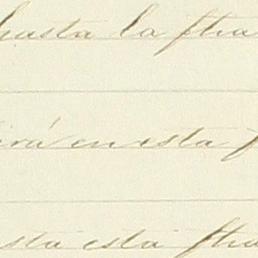 hasta la ftra
irá en esta f
sta esta ftra